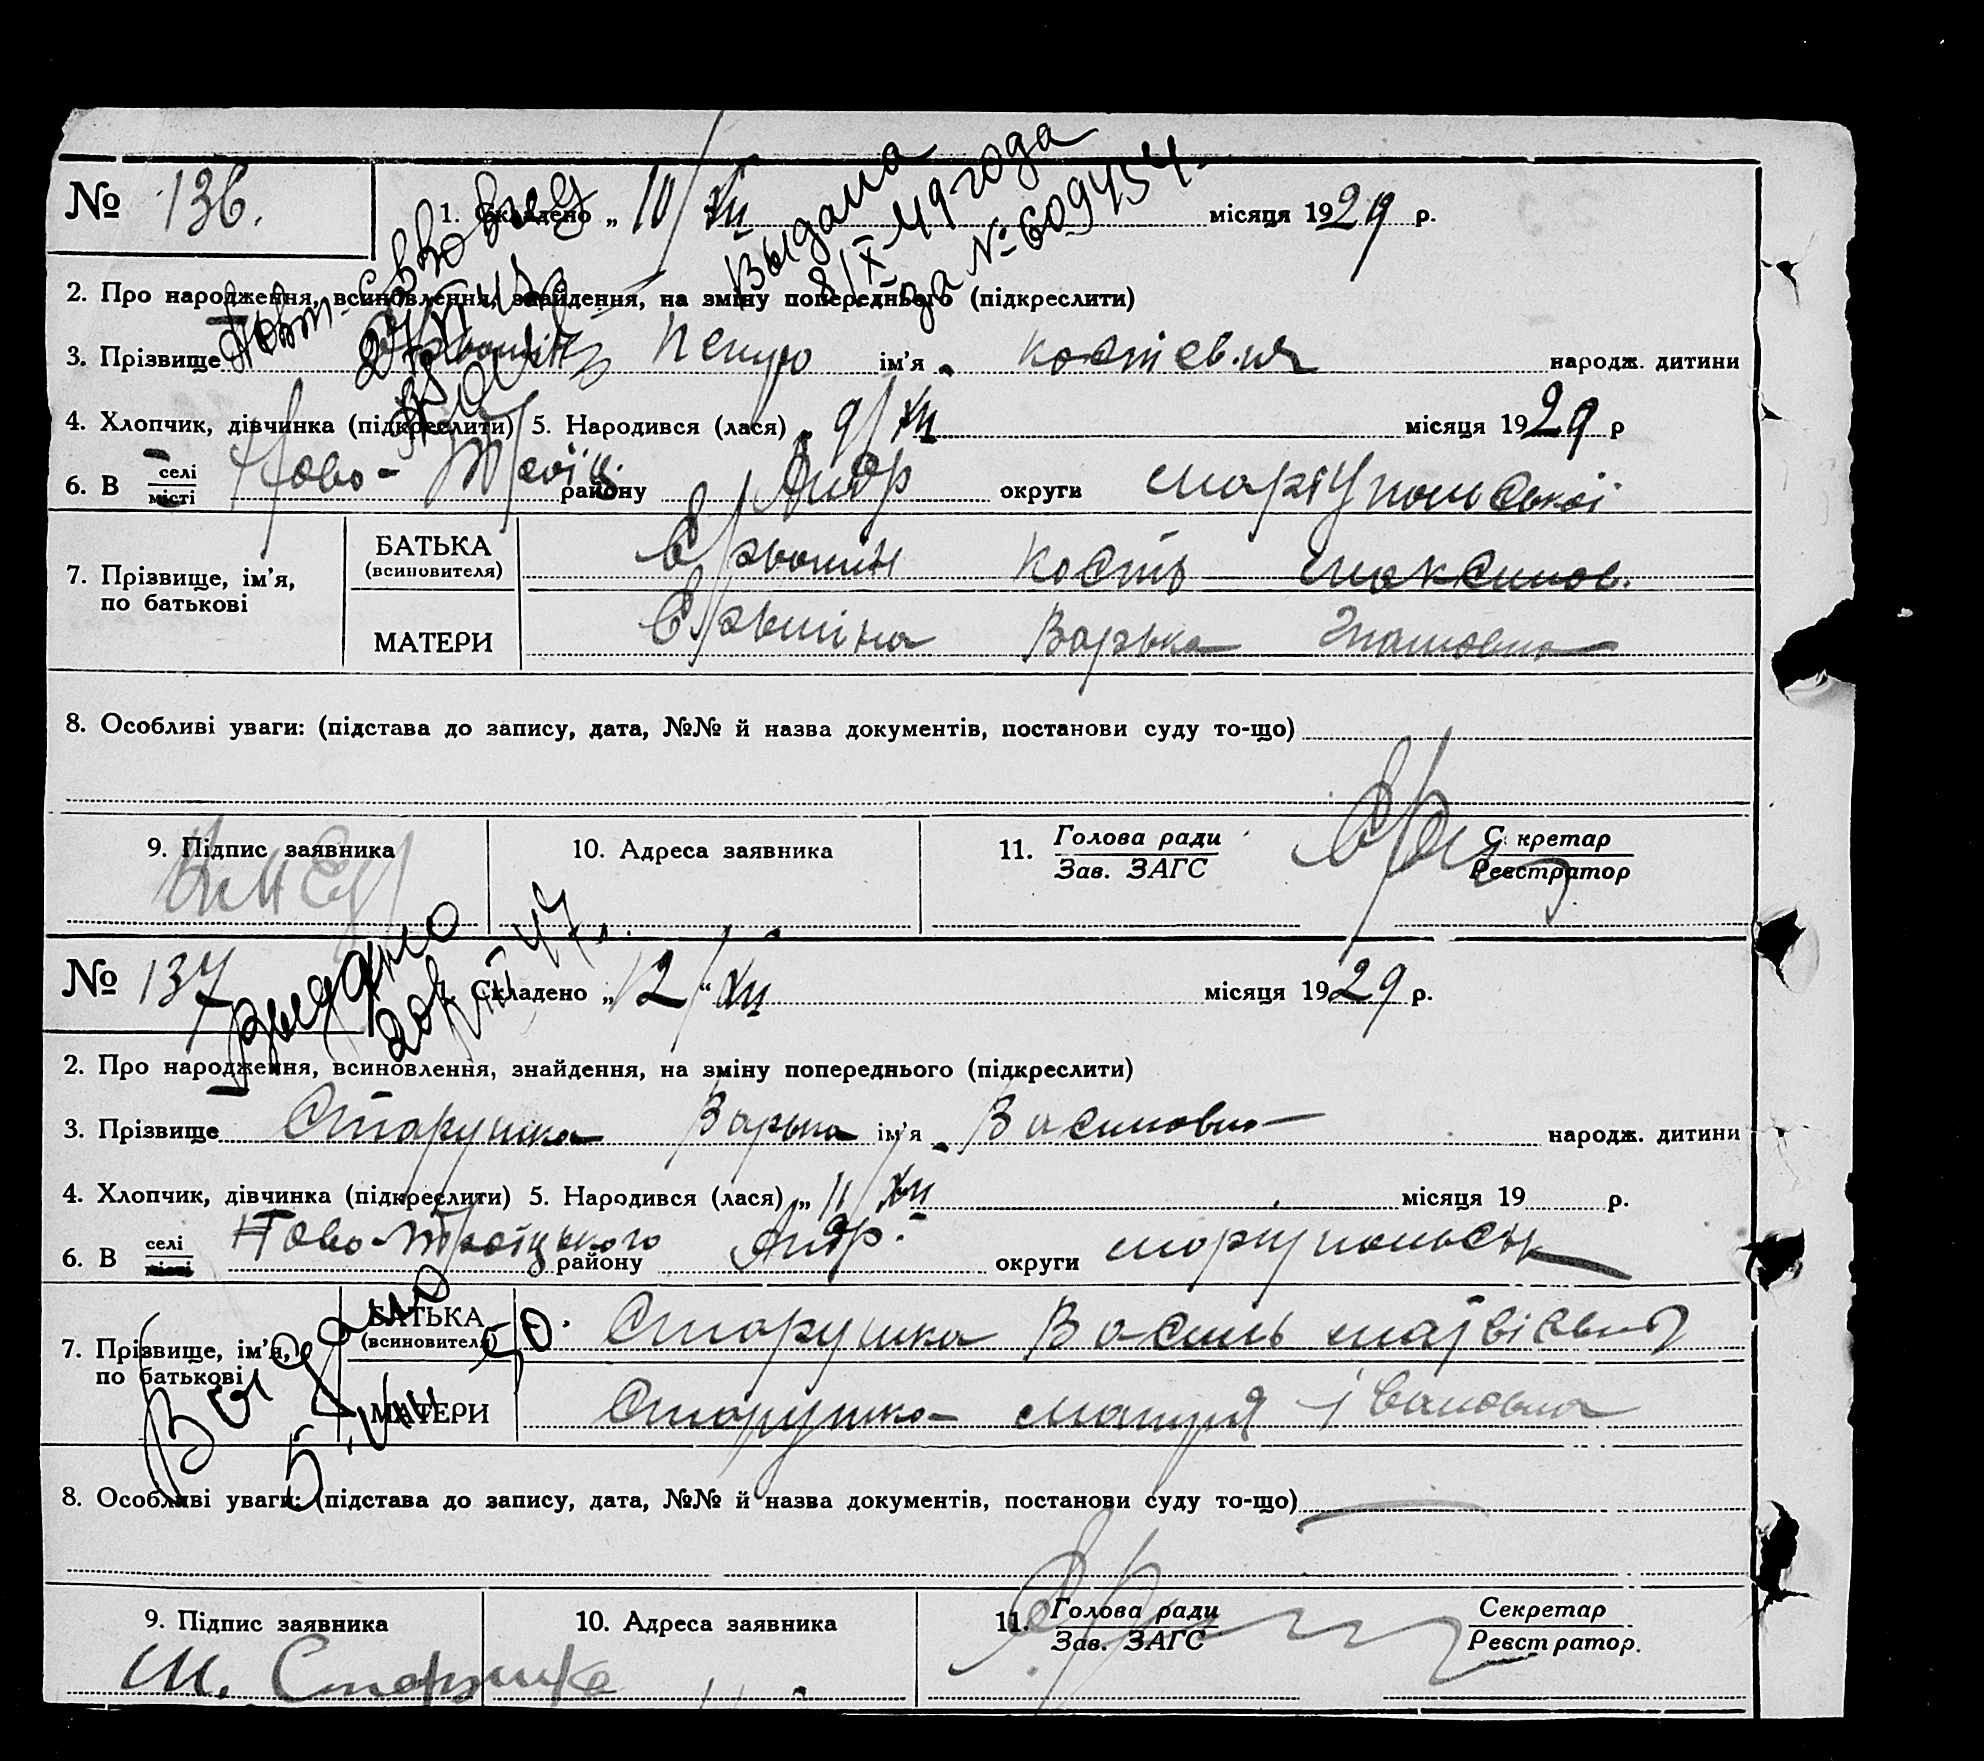 № 136.
1. Складено „ 10/XII місяця 1929 р.
Выдана
8/X-49 года
за № 609454
2. Про народження, всиновлення, знайдення, на зміну попереднього (підкреслити)
3. Прізвище Петро ім'я Костіевич народж. дитини
4. Хлопчик, дівчинка (підкреслити) 5. Народився (лася) „ 9/XII місяця 1929 р
6. В селі місті Ново-Троїц. району Андр округи маріупольської
7. Прізвище, ім'я, по батькові
БАТЬКА (всиновителя) Кость Максимов.
МАТЕРИ Варька
8. Особливі уваги: (підстава до запису, дата, №№ й назва документів, постанови суду то-що)
9. Підпис заявника
10. Адреса заявника
11. Голова ради Зав. ЗАГС
С кретар Реєстратор
№ 137
Складено „ 12/XII місяця 1929 р.
Выдано
2. Про народження, всиновлення, знайдення, на зміну попереднього (підкреслити)
3. Прізвище Старушка Варька ім'я Василовно народж. дитини
4. Хлопчик, дівчинка (підкреслити) 5. Народився (лася) „ 11/XII місяця 19 р.
6. В селі місті Ново-Троїцького району Андр. округи маріупольськ
7. Прізвище, ім'я, по батькові
БАТЬКА (всиновителя) Старушка Василь
МАТЕРИ Старушко Івановна
Выдано
5.VIII 50.
8. Особливі уваги: (підстава до запису, дата, №№ й назва документів, постанови суду то-що)
9. Підпис заявника
10. Адреса заявника
11. Голова ради Зав. ЗАГС
Секретар Реєстратор.
М. Старушка